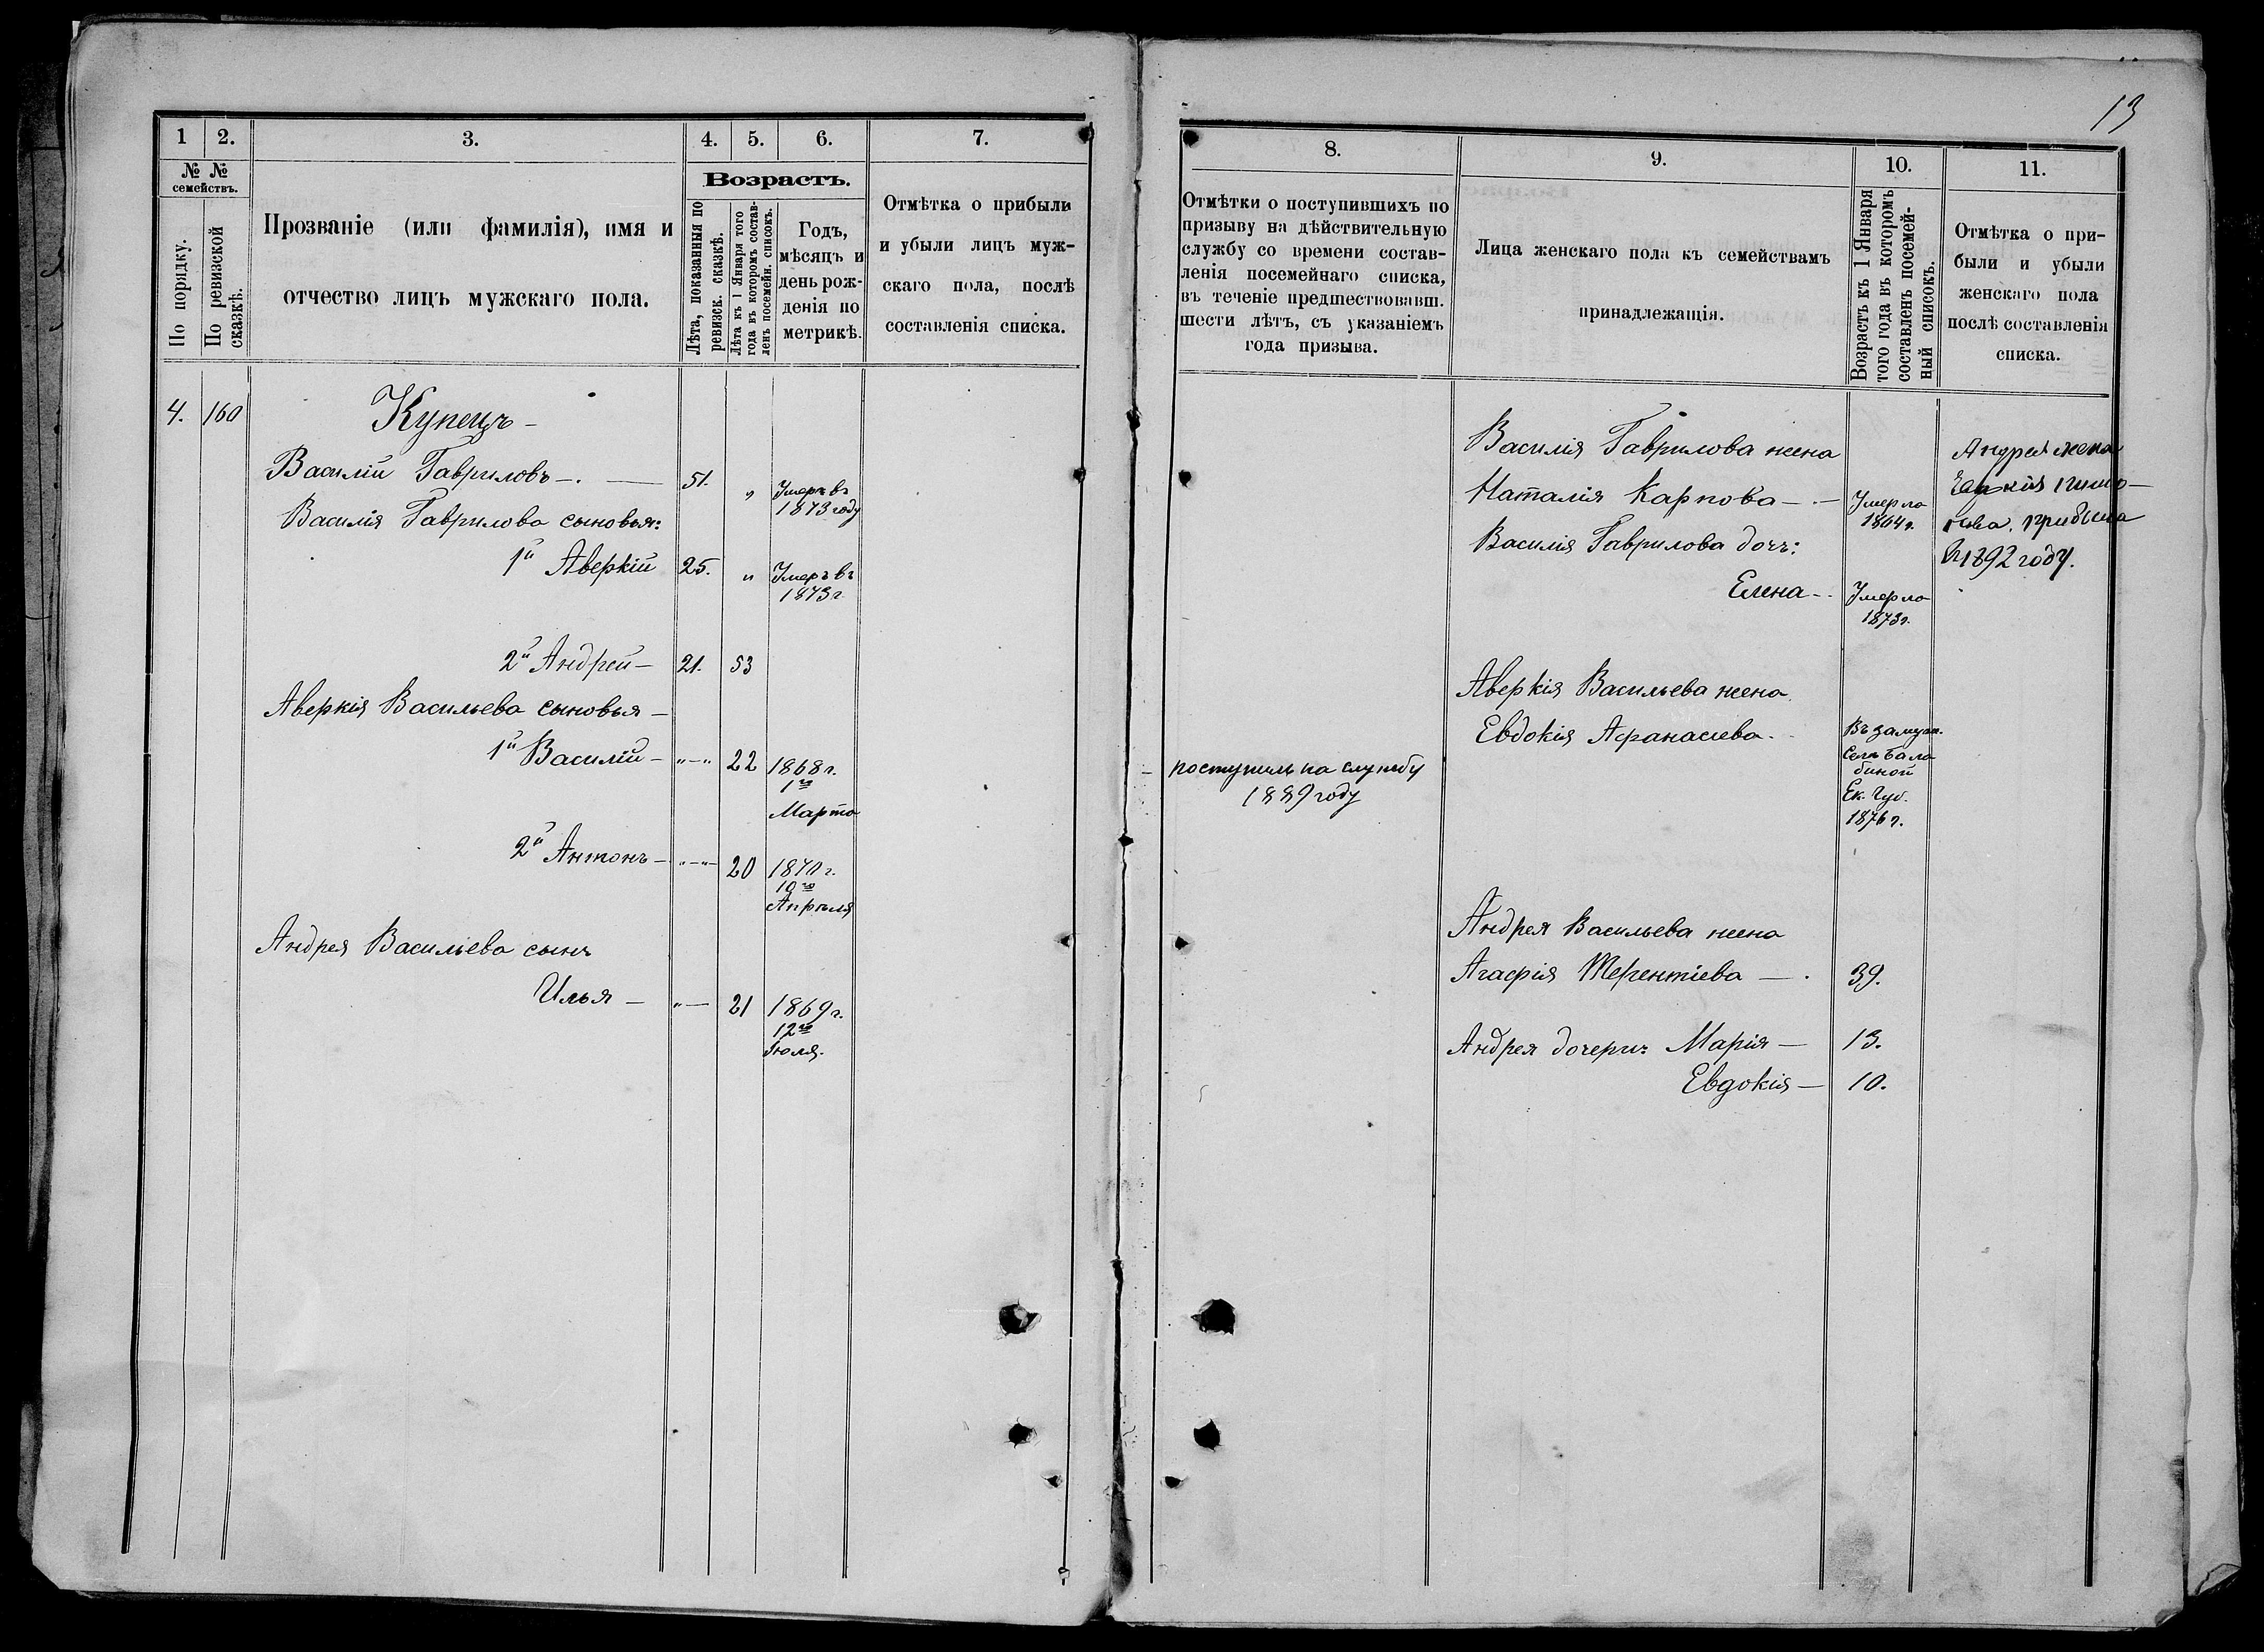 13
1
2.
3.
4.
5.
6.
7.
№ №
семействъ.
По порядку.
По ревизской
сказкѣ.
Прозваніе (или фамилія), имя и
отчество лицъ мужскаго пола.
Возрастъ.
Лѣта, показанныя по
ревизск. сказкѣ.
Лѣта къ 1 Января того
года въ которомъ состав-
ленъ посемейн. списокъ.
Годъ,
мѣсяцъ и
день рож-
денія по
метрикѣ.
Отмѣтка о прибыли
и убыли лицъ муж-
скаго пола, послѣ
составленія списка.
4. 160 Купецъ –
Василій Гавриловъ –. — 51. „ Умеръ въ
1873 году
Василія Гаврилова сыновья:
1й Аверкій 25. „ Умеръ въ
1873 г.
2й Андрей – 21. 53
Аверкія Васильева сыновья –
1й Василій – „–„ 22 1868 г.
1го
Марта
2й Антонъ – „–„– 20 1870 г.
10го
Апрѣля
Андрея Васильева сынъ
Илья – „— 21 1869 г.
12го
Іюля.
8.
9.
10.
11.
Отмѣтки о поступившихъ по
призыву на дѣйствительную
службу со времени состав-
ленія посемейнаго списка,
въ теченіе предшествовавш.
шести лѣтъ, съ указаніемъ
года призыва.
Лица женскаго пола къ семействамъ
принадлежащія.
Возрастъ къ 1 Января
того года въ которомъ
составленъ посемей-
ный списокъ.
Отмѣтка о при-
были и убыли
женскаго пола
послѣ составленія
списка.
Василія Гаврилова жена
Наталія Карпова –.– Умерла
1864 г.
Василія Гаврилова дочь:
Елена –. Умерла
1873 г.
Андрея жена
прибыла
въ 1892 году.
Аверкія Васильева жена
Евдокія Афанасіева. Въ замуж.
Ек. Губ.
1876 г.
– поступилъ на службу
1889 году
Андрея Васильева жена
Агафія Терентіева —. 39.
Андрея дочери: Марія – 13.
Евдокія – 10.